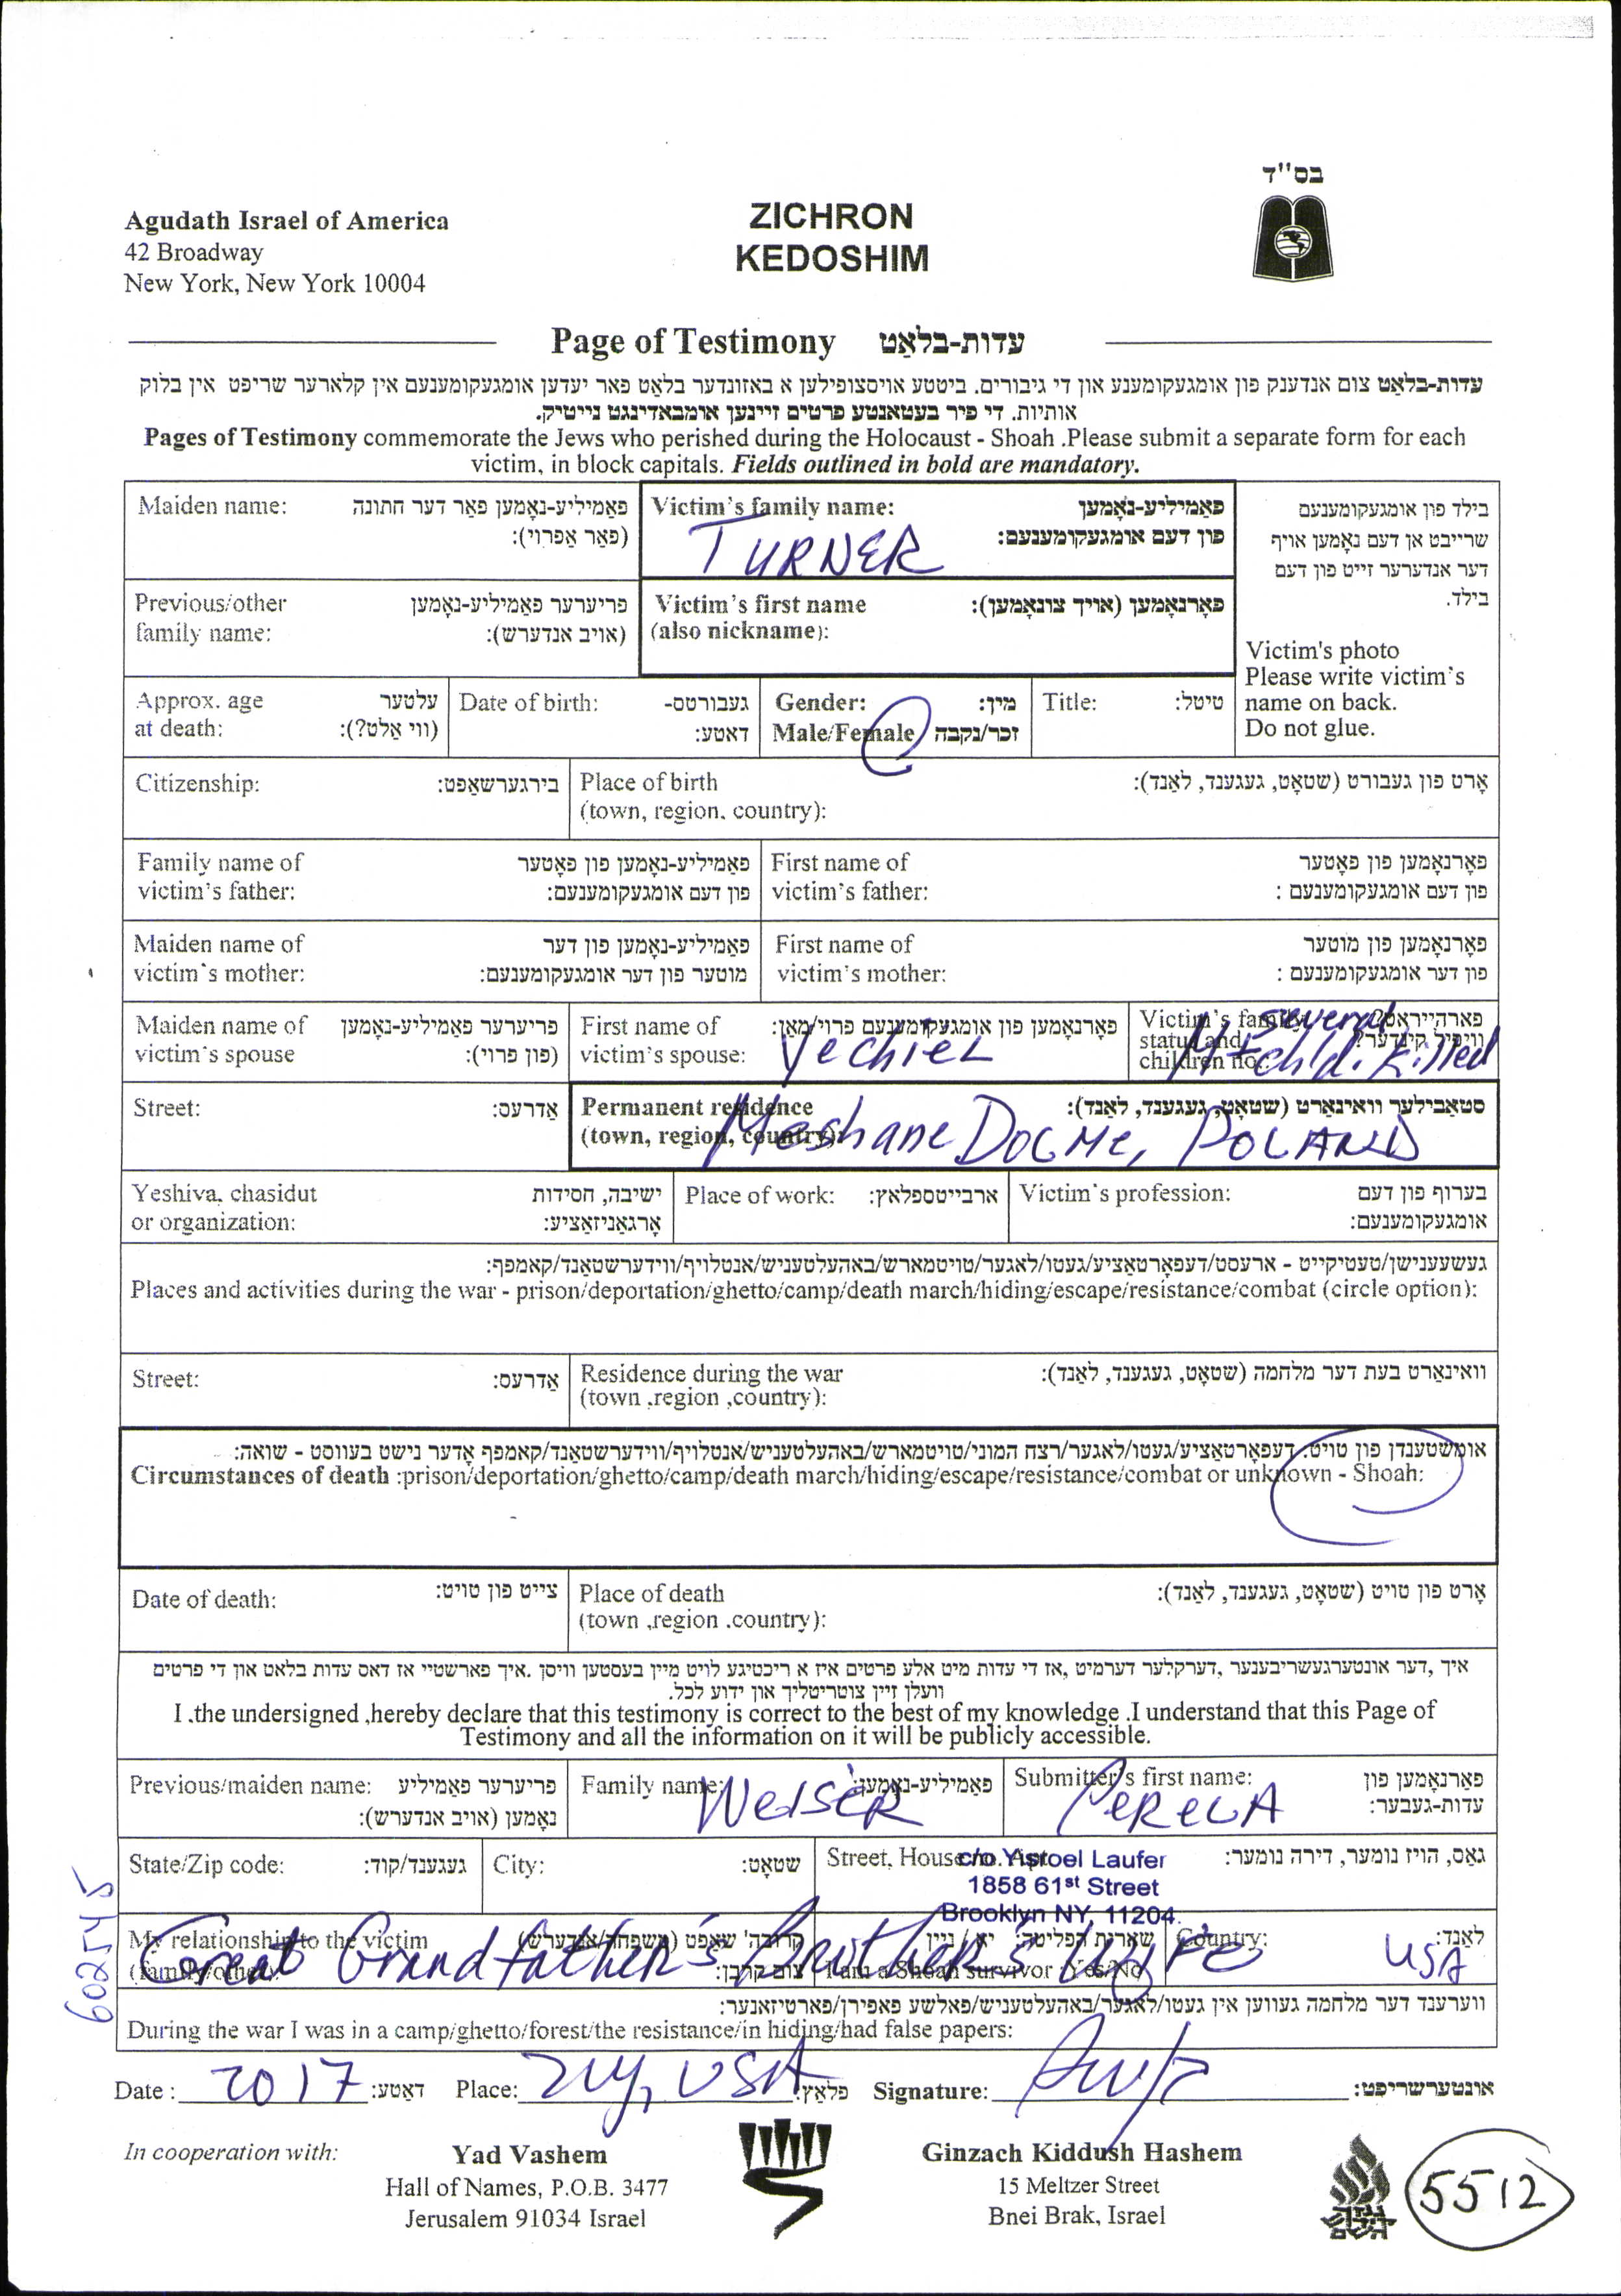 בס"ד
Agudath Israel of America
42 Broadway
New York, New York 10004
ZICHRON
KEDOSHIM
Page of Testimony עדות-בלאַט
עדות-בלאַט צום אנדענק פון אומגעקומענע און די גיבורים. ביטטע אויסצופילען א באזונדער בלאַט פאר יעדען אומגעקומענעם אין קלארער שריפט אין בלוק
אותיות. די פיר בעטאנטע פרטים זיינען אומבאדינגט נייטיק.
Pages of Testimony commemorate the Jews who perished during the Holocaust - Shoah .Please submit a separate form for each
victim, in block capitals. Fields outlined in bold are mandatory.
Maiden name: פאַמיליע-נאָמען פאַר דער חתונה
(פאַר אַפרוי):
Victim's family name: פאַמיליע-נאָמען
פון דעם אומגעקומענעם:
TURNER
בילד פון אומגעקומענעם
שרייבט אן דעם נאָמען אויף
דער אנדערער זייט פון דעם
בילד.
Victim's photo
Please write victim's
name on back.
Do not glue.
Previous/other פריערער פאַמיליע-נאָמען
family name: (אויב אנדערש):
Victim's first name פאָרנאָמען (אויך צונאָמען):
(also nickname):
Approx. age עלטער
at death: (ווי אַלט?):
Date of birth: געבורטס-
דאטע:
Gender: מין:
Male/Female זכר/נקבה
Title: טיטל:
Citizenship: בירגערשאַפט:
Place of birth אָרט פון געבורט (שטאָט, געגענד, לאַנד):
(town, region, country):
Family name of פאַמיליע-נאָמען פון פאָטער
victim's father: פון דעם אומגעקומענעם:
First name of פאָרנאָמען פון פאָטער
victim's father: פון דעם אומגעקומענעם :
Maiden name of פאַמיליע-נאָמען פון דער
victim's mother: מוטער פון דער אומגעקומענעם:
First name of פאָרנאָמען פון מוטער
victim's mother: פון דער אומגעקומענעם :
Maiden name of פריערער פאַמיליע-נאָמען
victim's spouse (פון פרוי):
First name of פאָרנאָמען פון אומגעקומענעם פרוי/מאַן:
victim's spouse: Yechiel
Victim's family פארהייראט?
status and וויפיל קינדער?
children no.:
several
M + child. killed
Street: אַדרעס:
Permanent residence סטאַבילער וואוינאָרט (שטאָט, געגענד, לאַנד):
(town, region, country):
Meshane DOLME, POLAND
Yeshiva, chasidut ישיבה, חסידות
or organization: אָרגאַניזאַציע:
Place of work: ארבייטספלאץ:
Victim's profession: בערוף פון דעם
אומגעקומענעם:
געשעענישן/טעטיקייט - ארעסט/דעפאָרטאַציע/געטו/לאגער/טויטמארש/באהעלטעניש/אנטלויף/ווידערשטאַנד/קאמפף:
Places and activities during the war - prison/deportation/ghetto/camp/death march/hiding/escape/resistance/combat (circle option):
Street: אַדרעס:
Residence during the war וואוינאָרט בעת דער מלחמה (שטאָט, געגענד, לאַנד):
(town ,region ,country):
אומשטענדן פון טויט: דעפאָרטאַציע/געטו/לאגער/רצח המוני/טויטמארש/באהעלטעניש/אנטלויף/ווידערשטאַנד/קאמפף אָדער נישט בעוווסט - שואה:
Circumstances of death :prison/deportation/ghetto/camp/death march/hiding/escape/resistance/combat or unknown - Shoah:
Date of death: צייט פון טויט:
Place of death אָרט פון טויט (שטאָט, געגענד, לאַנד):
(town ,region .country):
איך ,דער אונטערגעשריבענער ,דערקלער דערמיט ,אז די עדות מיט אלע פרטים איז א ריכטיגע לויט מיין בעסטען וויסן .איך פארשטיי אז דאס עדות בלאט און די פרטים
וועלן זיין צוטריטליך און ידוע לכל.
I .the undersigned ,hereby declare that this testimony is correct to the best of my knowledge .I understand that this Page of
Testimony and all the information on it will be publicly accessible.
Previous/maiden name: פריערער פאַמיליע
נאָמען (אויב אנדערש):
Family name: פאַמיליע-נאָמען:
Weiser
Submitter's first name: פאָרנאָמען פון
עדות-געבער:
Perela
State/Zip code: געגענד/קוד:
City: שטאָט:
Street, House no. Apt. גאַס, הויז נומער, דירה נומער:
c/o Yisroel Laufer
1858 61st Street
Brooklyn NY, 11204
My relationship to the victim קרובה' שאַפט (משפחה/אנדערש)
(family/other): צום קרבן:
שארית הפליטה: יא / ניין
I am a Shoah survivor :Yes/No
Country: לאַנד:
Great Grandfather's Brother's Wife
USA
ווערענד דער מלחמה געווען אין געטו/לאגער/באהעלטעניש/פאלשע פאפירן/פארטיזאנער:
During the war I was in a camp/ghetto/forest/the resistance/in hiding/had false papers:
602545
Date : 2017 דאַטע: Place: NY, USA פלאַץ: Signature: אונטערשריפט:
In cooperation with:
Yad Vashem
Hall of Names, P.O.B. 3477
Jerusalem 91034 Israel
Ginzach Kiddush Hashem
15 Meltzer Street
Bnei Brak, Israel
5512